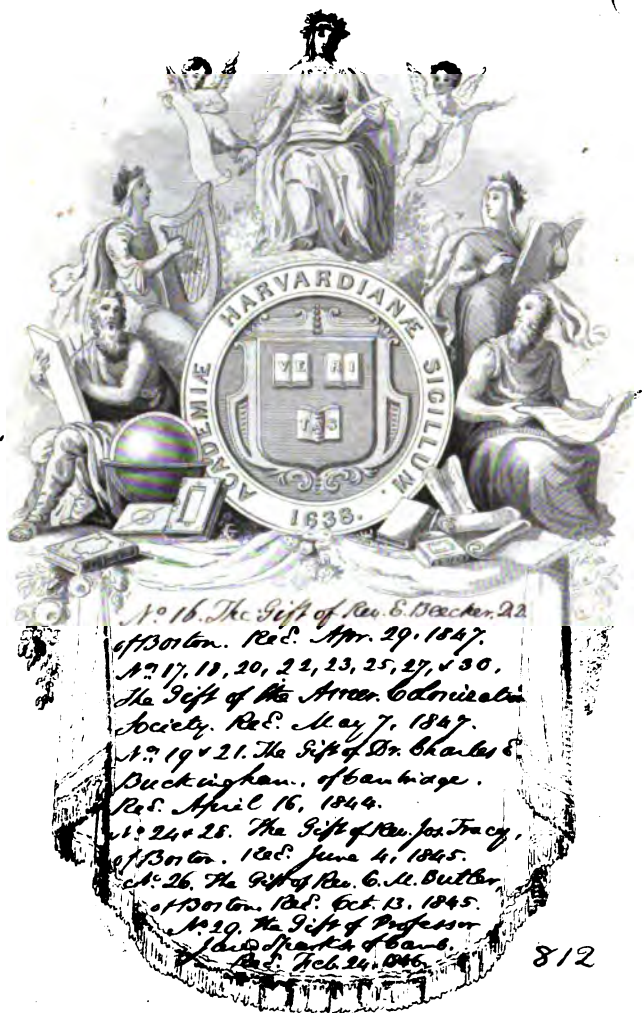 ACADEMIÆ HARVARDIANÆ SIGILLUM.
VE RI
TAS
1638.
No. 16. The Gift of Rev. E. Beecher, D.D.
of Boston. Rec. Apr. 29, 1847.
Nos. 17, 18, 20, 22, 23, 25, 27, & 30,
The Gift of the Amer. Colonization
Society. Rec. May 7, 1847.
Nos. 19 & 21. The Gift of Dr. Charles E.
Buckingham, of Cambridge.
Rec. April 16, 1844.
No. 24 & 28. The Gift of Rev. Jos. Tracy,
of Boston. Rec. June 4, 1845.
No. 26. The Gift of Rev. C. M. Butler
of Boston. Rec. Oct. 13, 1845.
No. 29. The Gift of Professor
Jared Sparks of Camb.
Rec. Feb. 24, 1846.
812